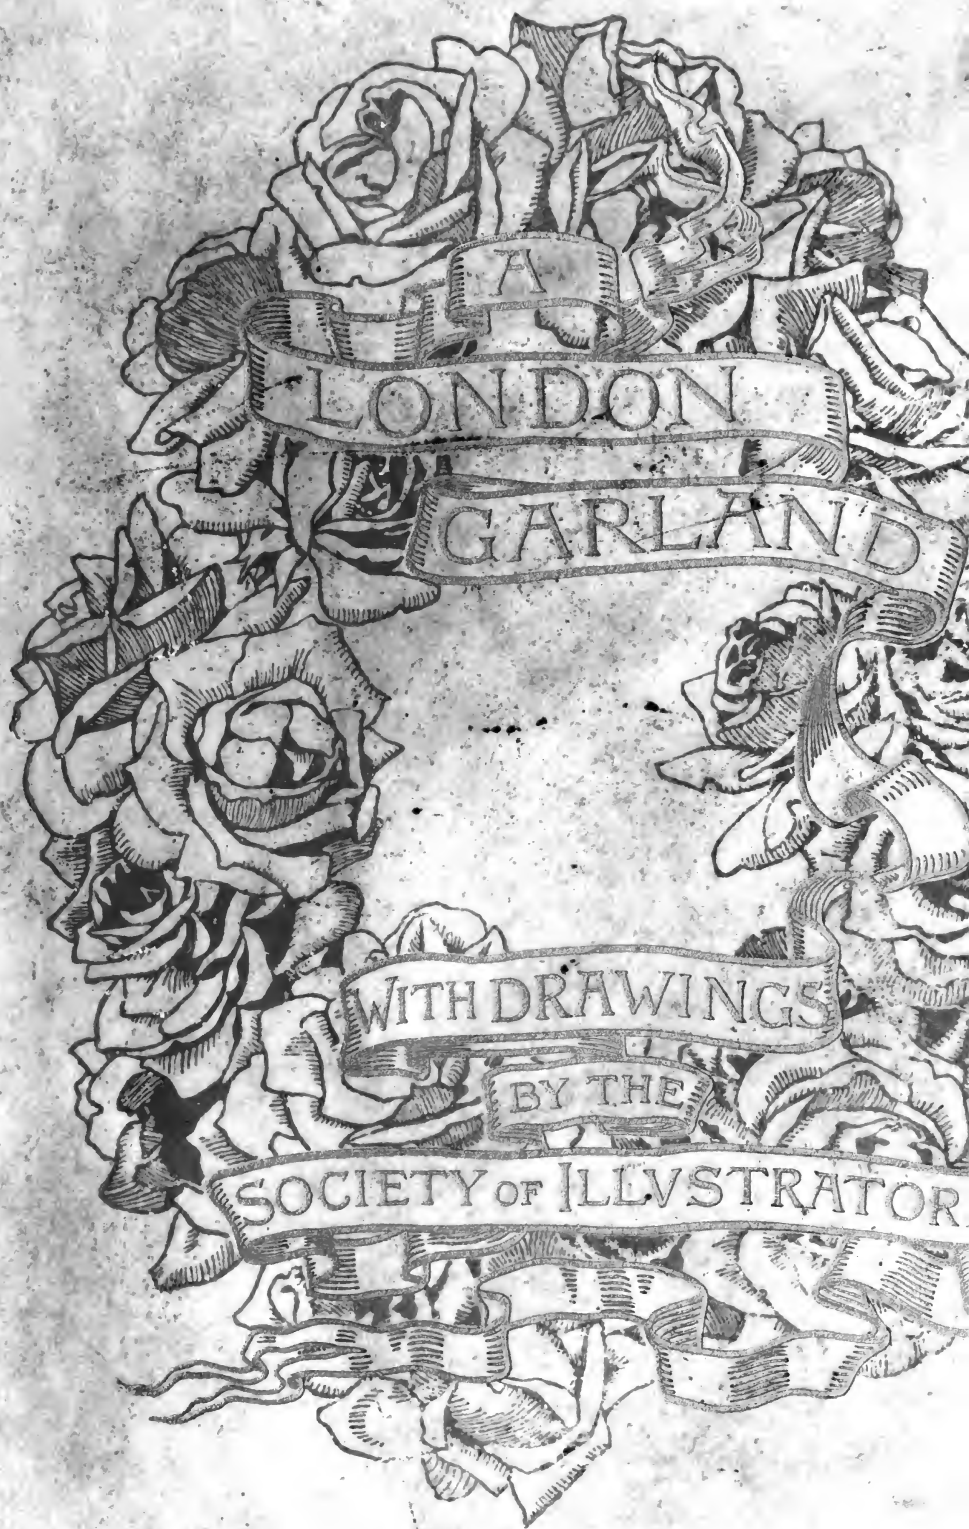 A
LONDON
GARLAND
WITH DRAWINGS
BY THE
SOCIETY OF ILLVSTRATOR